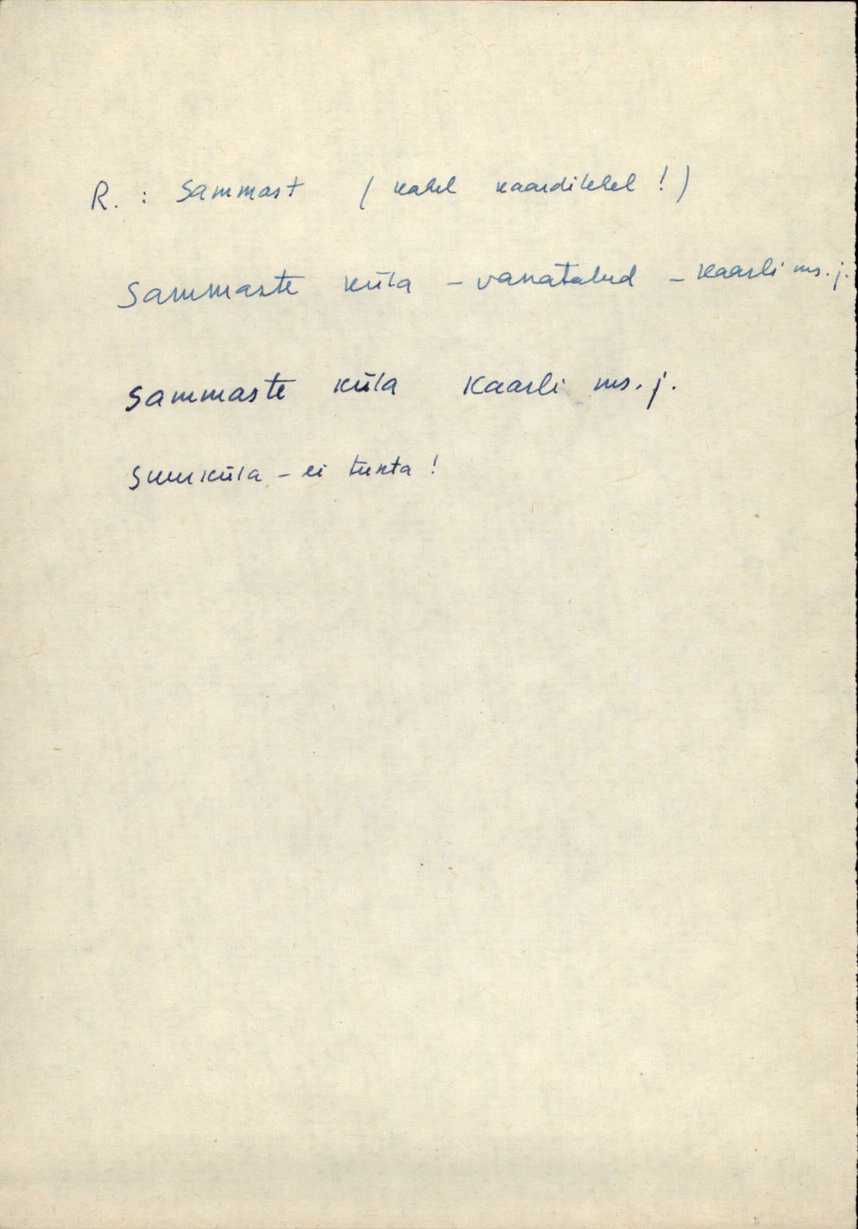 R. : Sammast ( kahel kaardilehel ! )
Sammaste küla – vanatalud – Kaarli ms. j.
Sammaste küla Kaarli ms. j.
Suurküla – ei tunta !